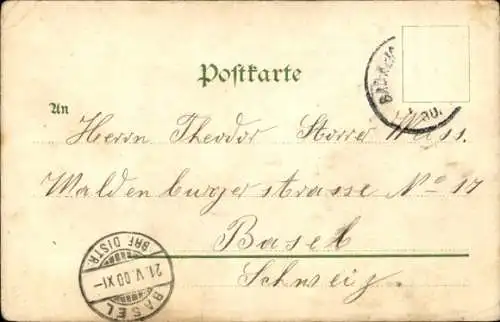 Postkarte
An
Herrn Theodor Storre Weiss.
Waldenburgerstrasse No 17
Basel
Schweiz.
BRF. DISTR.
21. V. 00 XI–
BASEL